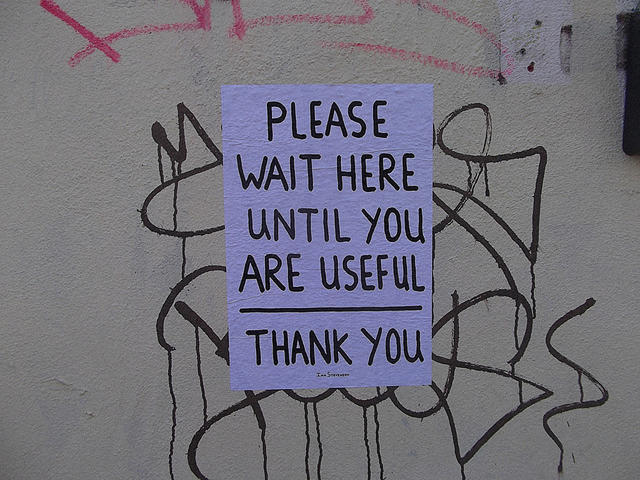 PLEASE
WAIT HERE
UNTIL YOU
ARE USEFUL
THANK YOU